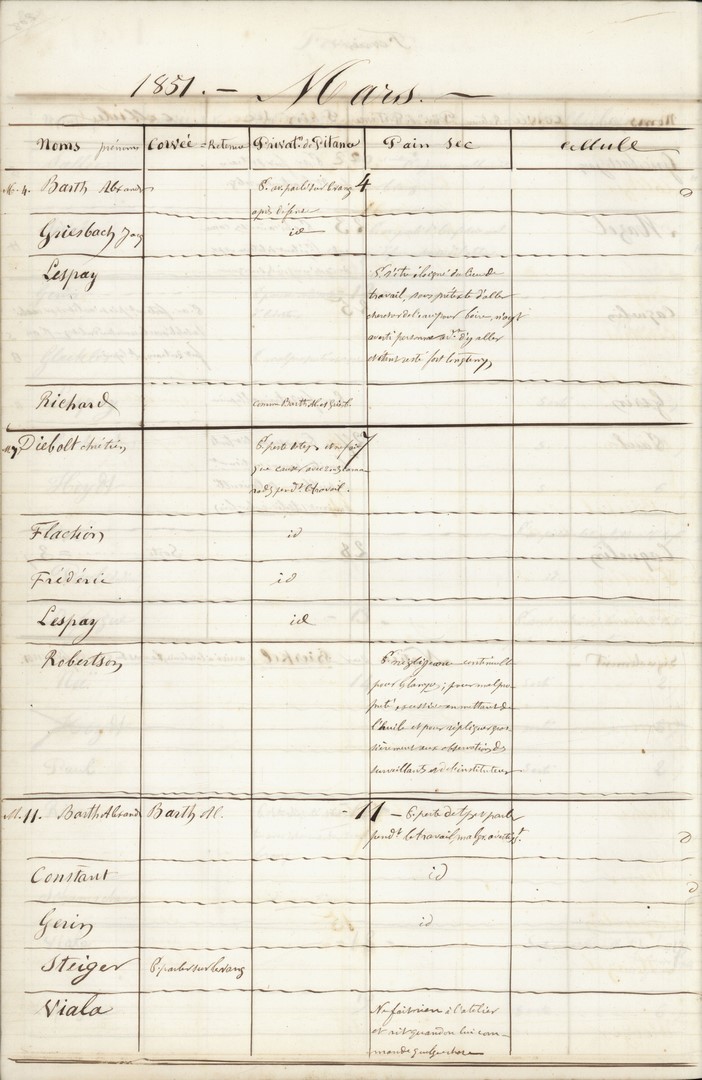 1851. — Mars. —
Noms prénoms Corvée = Retenue Privat.ⁿ de Pitance Pain Sec Cellule
M. 4. Barth Alexandre P. avr parlé sur le rang 4
après défense
Griesbach Jacq id
Lespay P. s'être éloigné du lieu de
travail, sous prétexte d'aller
chercher de l'eau pour boire, n'ayt
averti personne av.ⁿᵗ d'y aller
et étant resté fort longtemps
Richard comme Barth Al et Griesb.
M. 7 Diebolt chrétien P. perte de tps et ne faire 7
que causer avec ses cama-
rades pend.ᵗ le travail.
Flaction id
Frédéric id
Lespay id
Robertson P. négligence continuelle
pour les lampes; pour malpro-
preté excessive en mettant de
l'huile et pour répliquer gros-
sièrement aux observations des
surveillants et de l'instituteur
M. 11. Barth Alexand Barth Al. - 11 — P. perte de tps et parler
pend.ᵗ le travail malgré avertis.ᵗ
Constant id
Gerin id
Steiger P. parler sur le rang
Viala Ne fait rien à l'atelier
et rit quand on lui com-
mande quelque chose